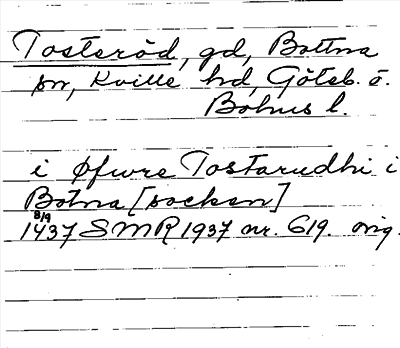 Tosteröd, gd, Bottna
sn, Kville hd, Göteb. o.
Bohus l.
i Øfwre Tostarudhi i
Botna [socken]
8/9
1437 SMR 1937 nr. 619. orig.